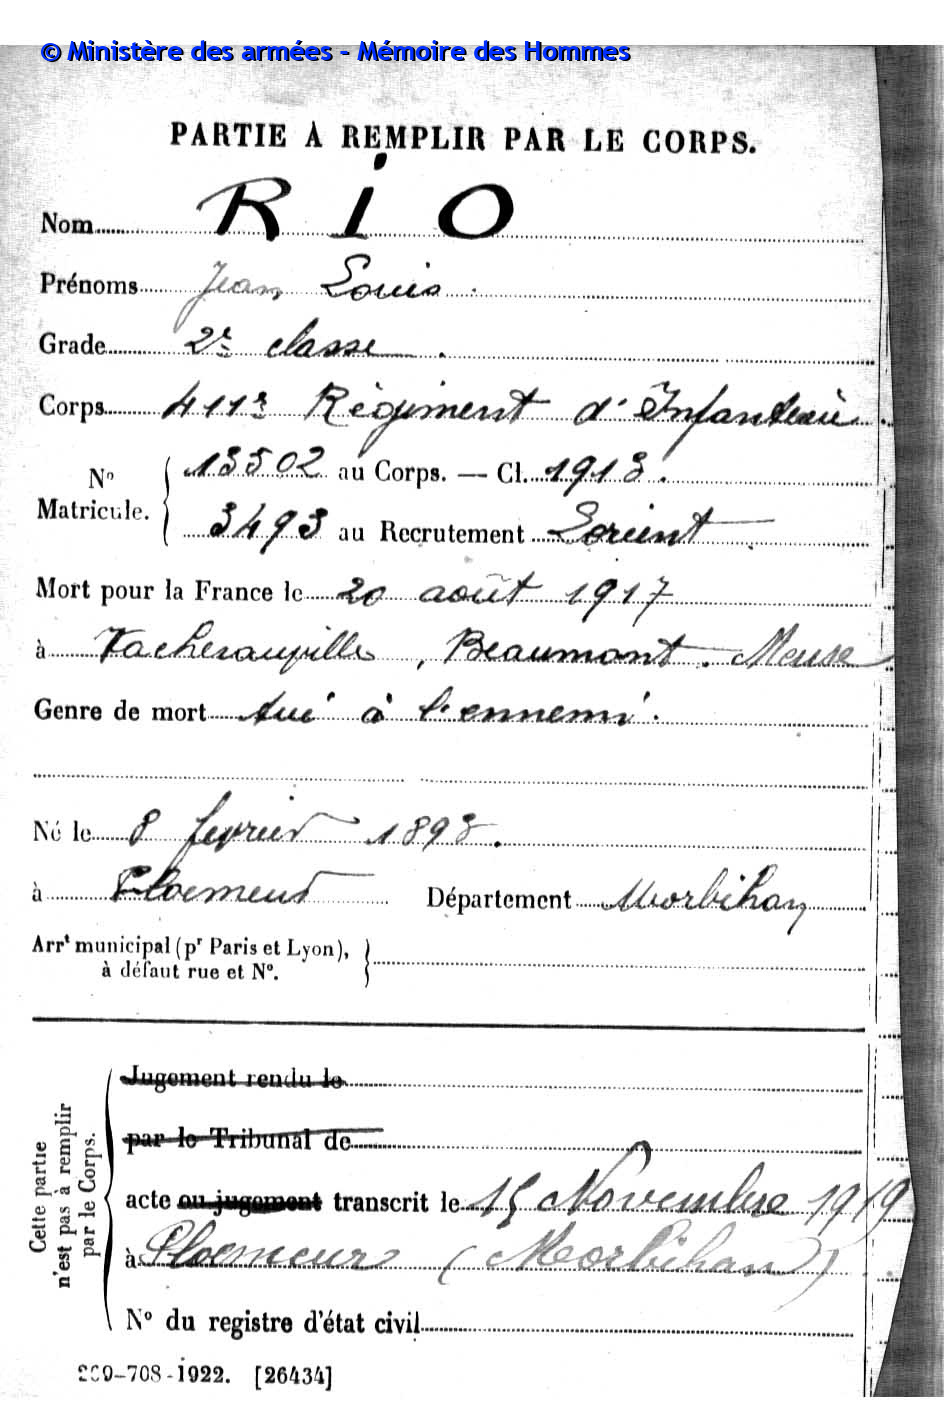 © Ministère des armées - Mémoire des Hommes
PARTIE À REMPLIR PAR LE CORPS.
Nom RIO
Prénoms Jean Louis
Grade 2e classe.
Corps 411e Régiment d'Infanterie
No Matricule. { 13502 au Corps. — Cl. 1913.
3493 au Recrutement Lorient
Mort pour la France le 20 août 1917
à Vacherauville, Beaumont. Meuse
Genre de mort tué à l'ennemi.
Né le 8 février 1893.
à Ploemeur Département Morbihan
Arrt municipal (pr Paris et Lyon),
à défaut rue et No. }
Cette partie n'est pas à remplir par le Corps.
Jugement rendu le
par le Tribunal de
acte ou jugement transcrit le 15 Novembre 1919
à Ploemeur (Morbihan)
No du registre d'état civil
269-708-1922. [26434]